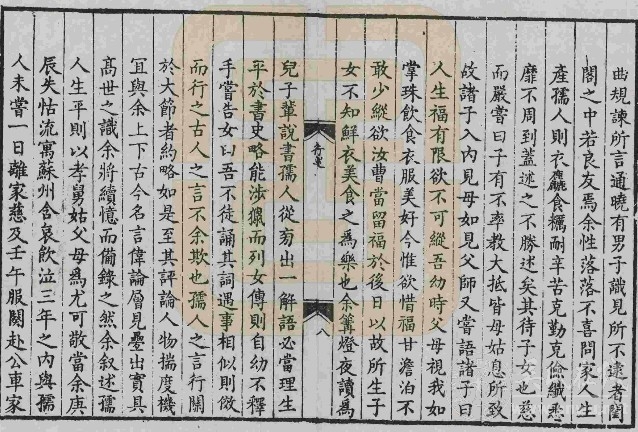 曲規諫所言通曉有男子識見所不逮者閨
閤之中若良友焉余性落落不喜問家人生
產孺人則衣麤食糲耐辛苦克勤克儉纖悉
靡不周到蓋述之不勝述矣其待子女也慈
而嚴嘗曰子有不率教大抵皆母姑息所致
故諸子入內見母如見父師又嘗語諸子曰
人生福有限欲不可縱吾幼時父母視我如
掌珠飲食衣服美好今惟欲惜福甘澹泊不
敢少縱欲汝曹當留福於後日以故所生子
女不知鮮衣美食之為樂也余篝燈夜讀為
八
兒子輩說書孺人從旁出一解語必當理生
平於書史略能涉獵而列女傳則自幼不釋
手嘗告女曰吾不徒誦其詞遇事相似則倣
而行之古人之言不余欺也孺人之言行關
於大節者約略如是至其評論人物揣度機
宜與余上下古今名言偉論層見疊出實具
高世之識余將續憶而備錄之然余叙述孺
人生平則以孝舅姑父母為尤可敬當余庚
辰失怙流寓蘇州含哀飲泣三年之內與孺
人未嘗一日離家慈及壬午服闋赴公車家